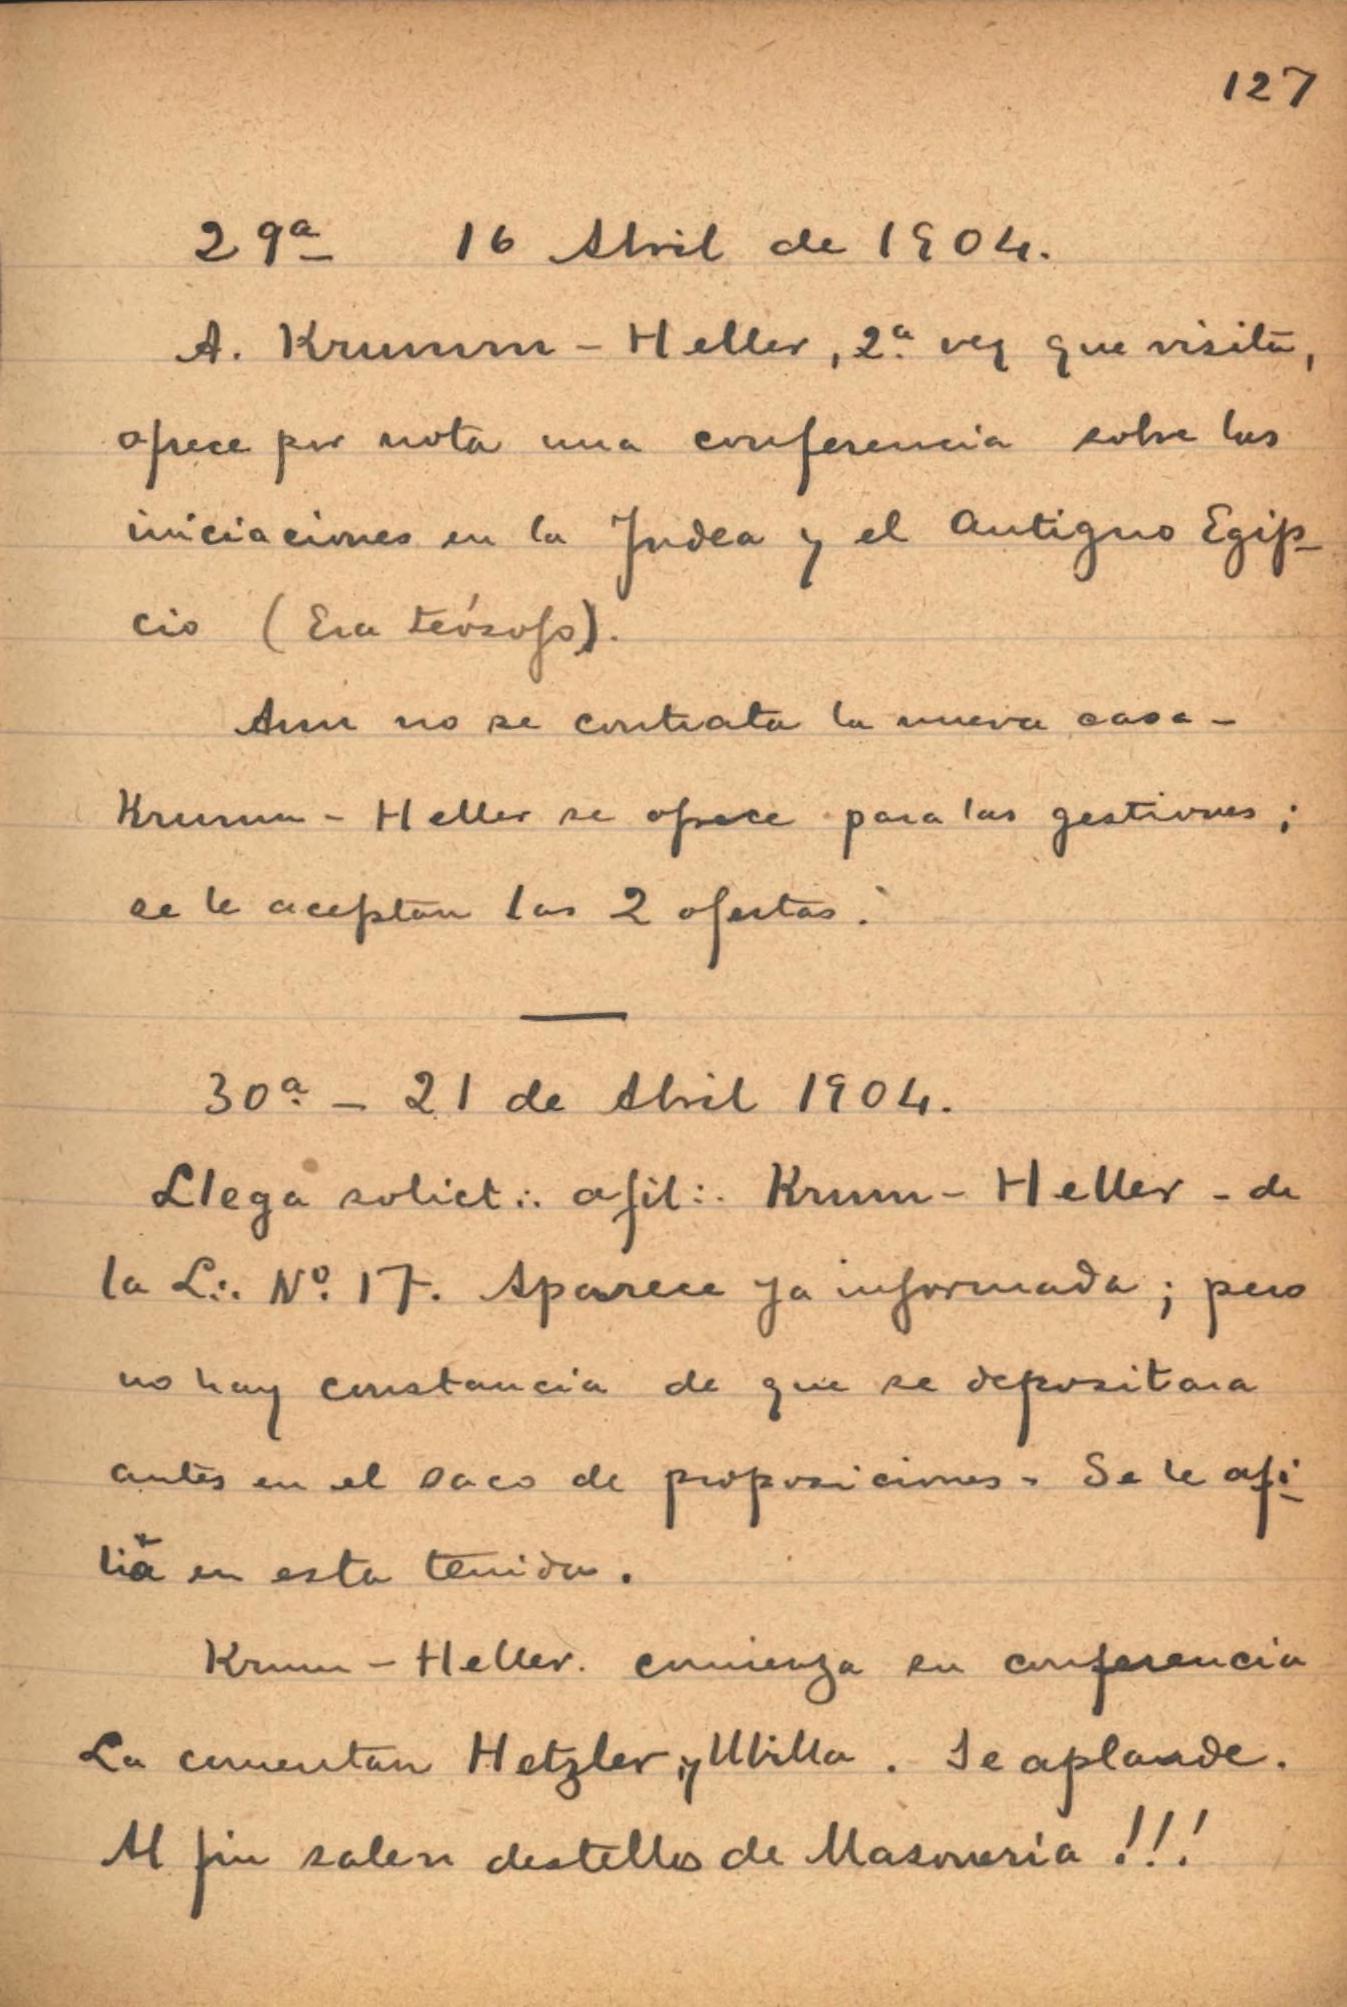 127
29ª 16 Abril de 1904.
A. Krumm-Heller, 2ª vez que visita,
ofrece por nota una conferencia sobre las
iniciaciones en la Judea y el Antiguo Egip-
cio (Era teósofo).
Aun no se contrata la nueva casa-
Krumm-Heller se ofrece para las gestiones;
se le aceptan las 2 ofertas.
30ª - 21 de Abril 1904.
Llega solict∴ afil∴ Krum-Heller - de
la L∴ Nº 17. Aparece ya informada; pero
no hay constancia de que se depositara
antes en el saco de proposiciones. Se le afi-
lia en esta tenida.
Krum-Heller. comienza su conferencia
La comentan Hetzler y Ubilla. Se aplaude.
Al fin salen destellos de Masoneria!!!